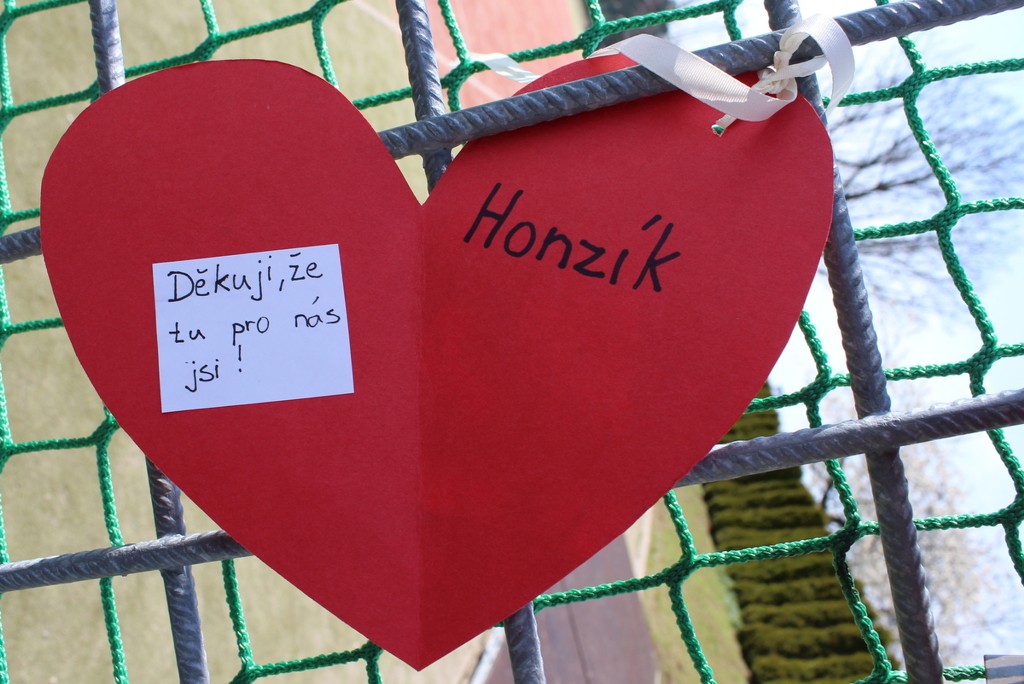 Děkuji, že
tu pro nás
jsi!
Honzík